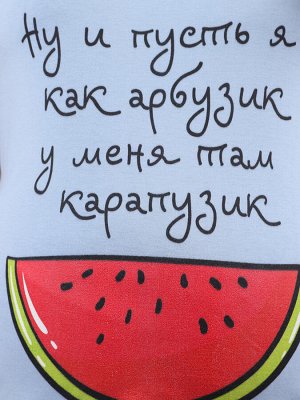 Ну и пусть я
как арбузик
у меня там
карапузик